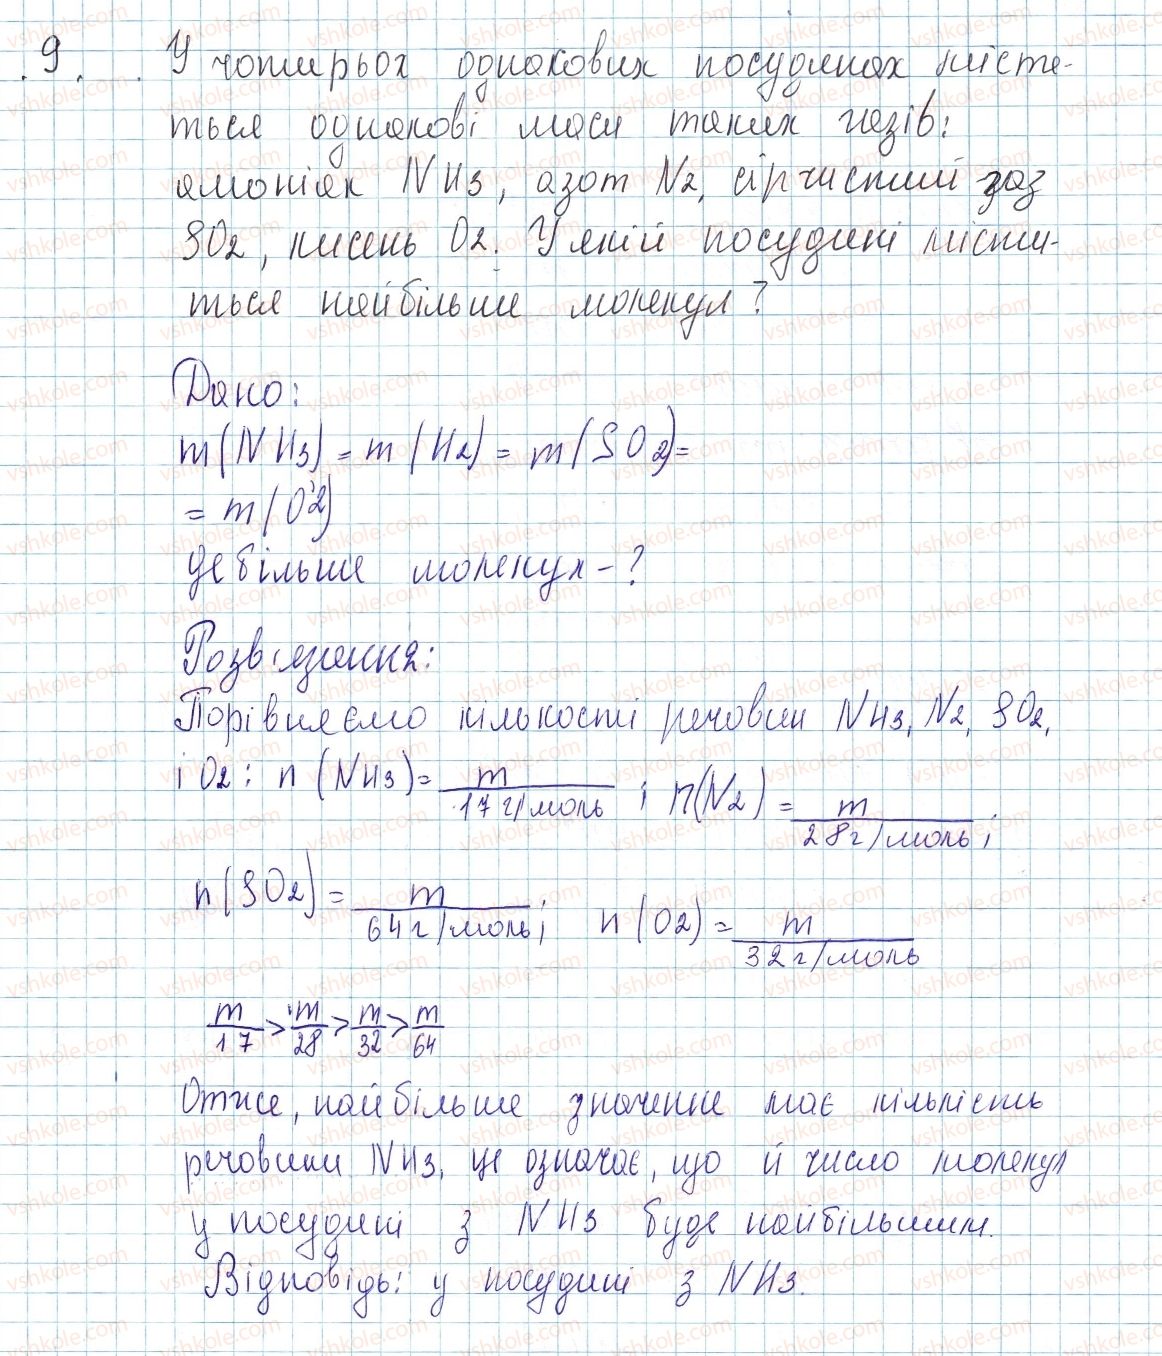 9. У чотирьох однакових посудинах місте-
ться однакові маси таких газів:
амоніак NH3, азот N2, сірчистий газ
SO2, кисень O2. У якій посудині місти-
ться найбільше молекул?
Дано:
m(NH3) = m(H2) = m(SO2) =
= m(O2)
Де більше молекул - ?
Розв'язання:
Порівняємо кількості речовин NH3, N2, SO2,
і O2: n(NH3) = m / 17 г/моль ; n(N2) = m / 28 г/моль ;
n(SO2) = m / 64 г/моль ; n(O2) = m / 32 г/моль
m/17 > m/28 > m/32 > m/64
Отже, найбільше значення має кількість
речовини NH3, це означає, що й число молекул
у посудині з NH3 буде найбільшим.
Відповідь: у посудині з NH3.
vshkole.com